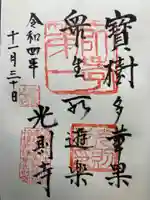 寶樹多華果
衆生所遊樂
光則寺
令和四年
十一月三十日